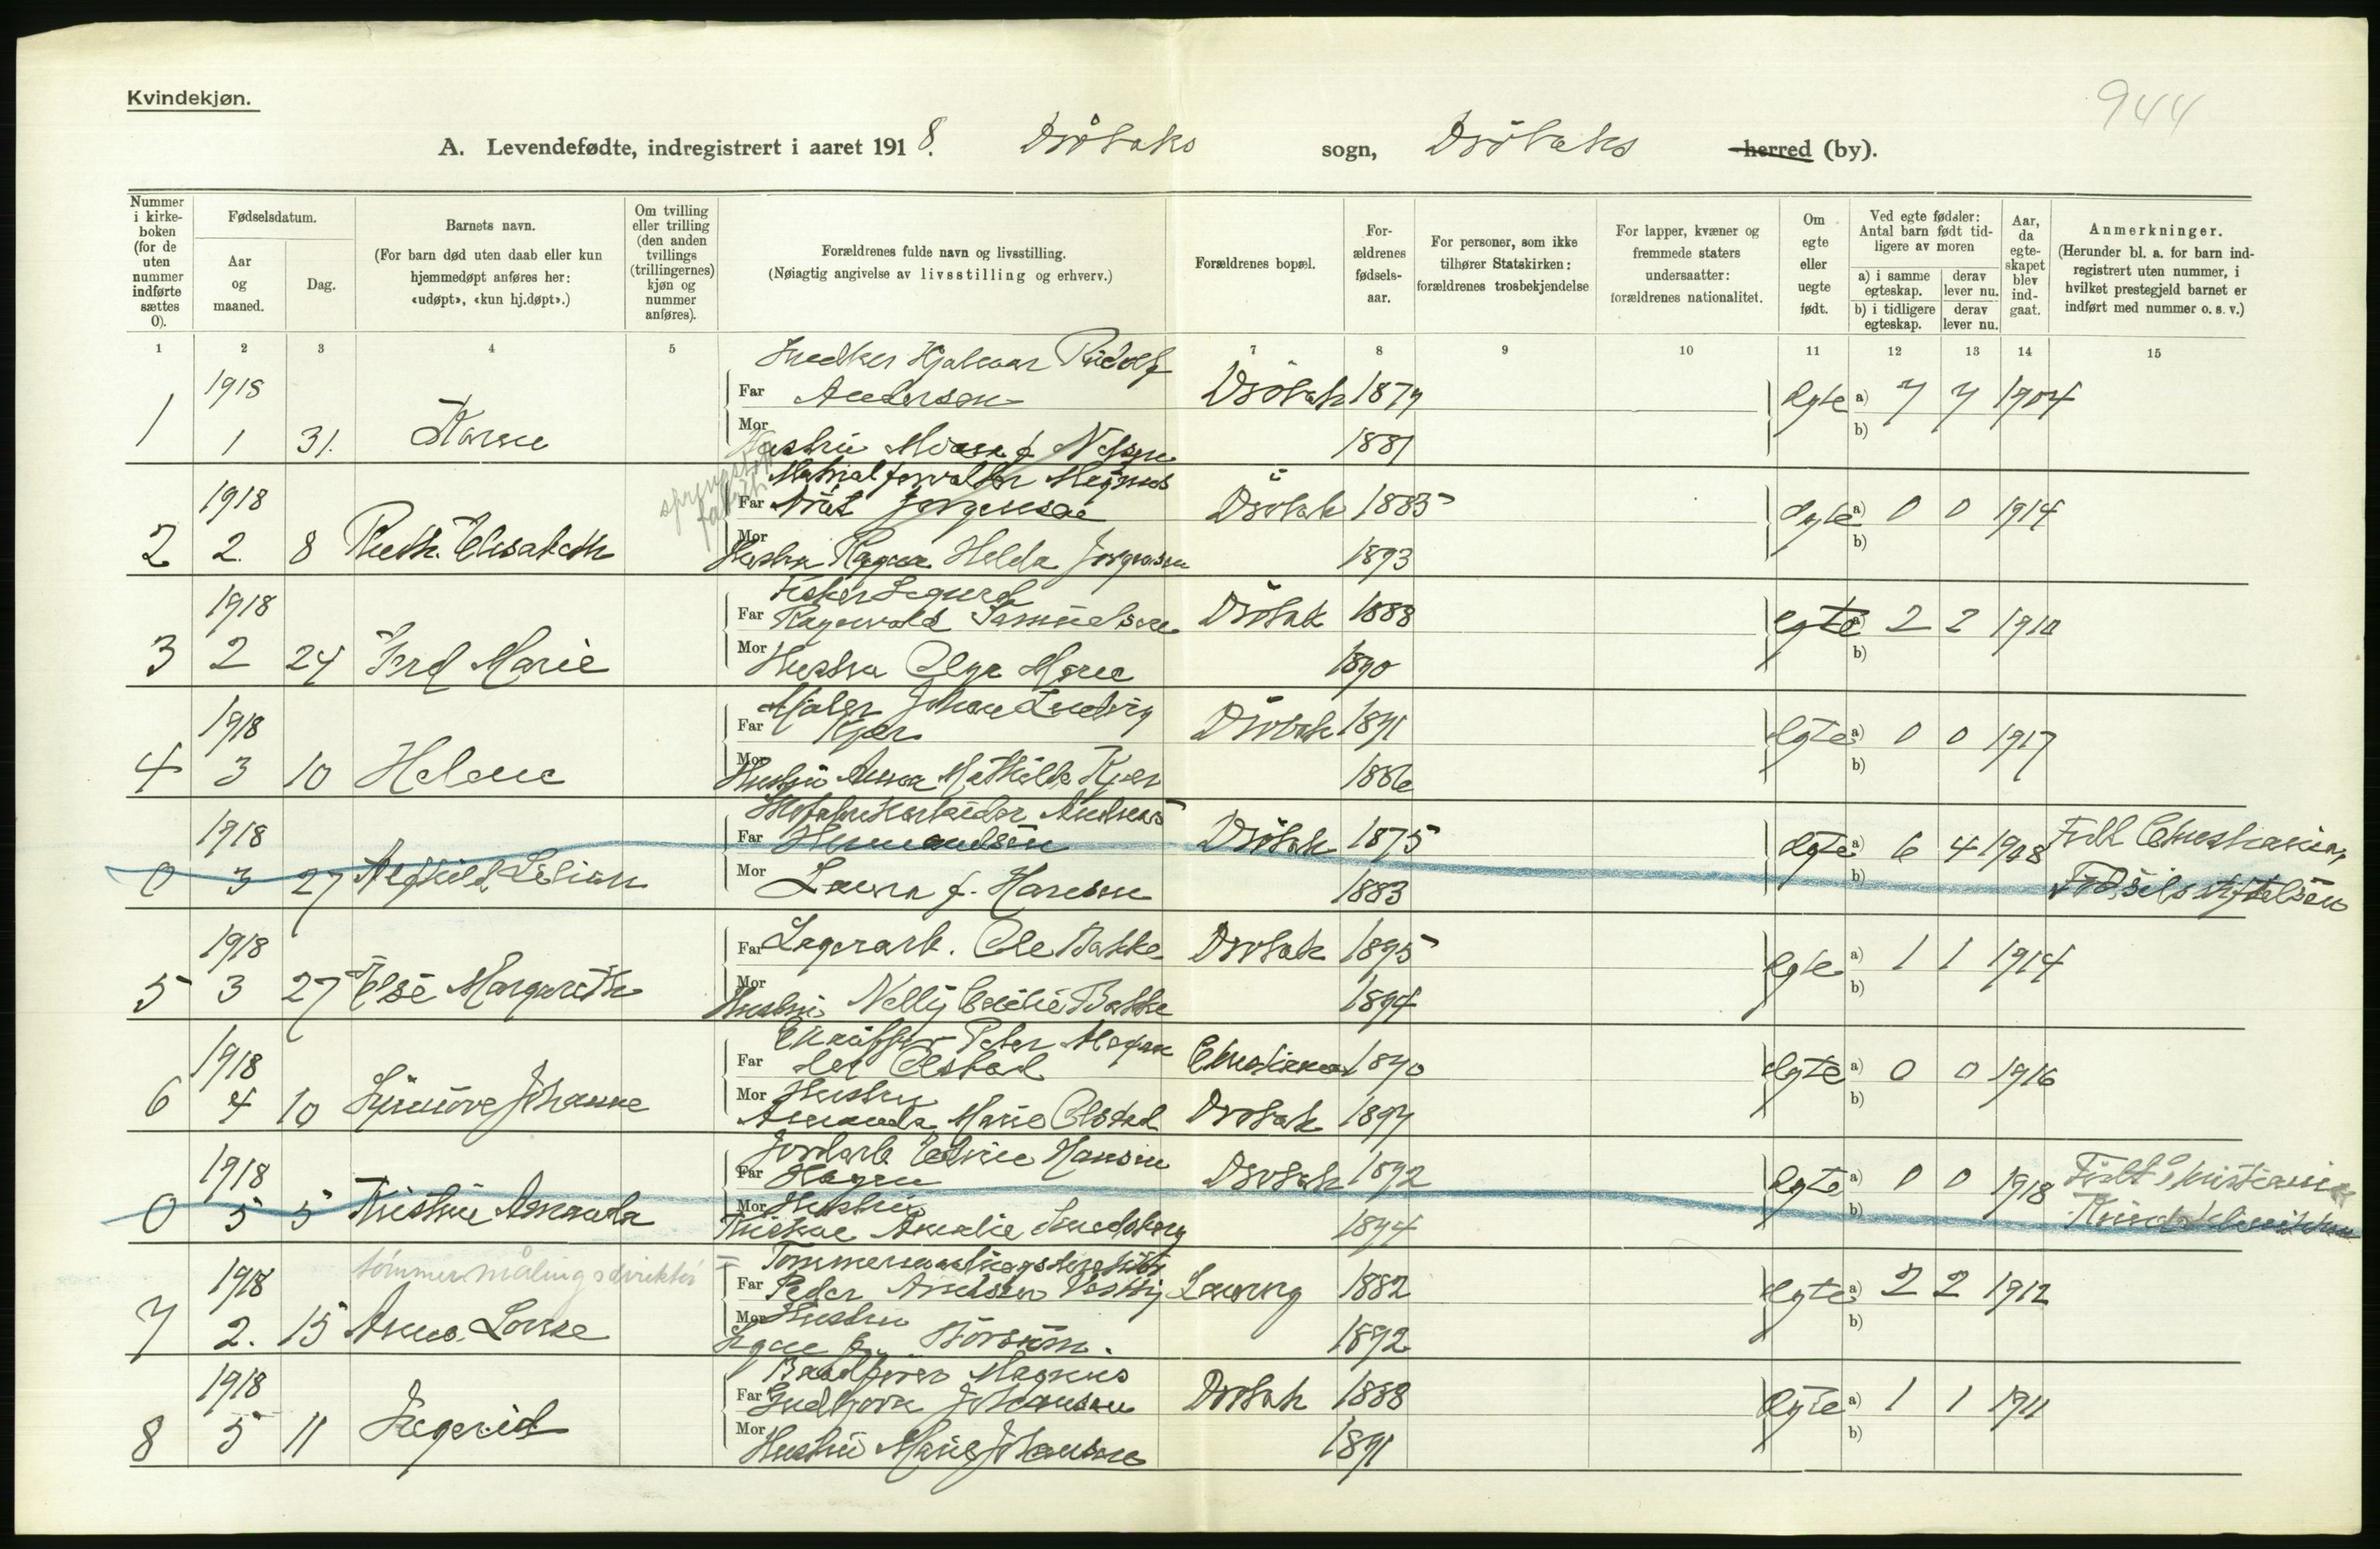 Kvindekjøn.
944
A. Levendefødte, indregistrert i aaret 1918. Drøbaks sogn, Drøbaks herred (by).
Nummer i kirke-boken (for de uten nummer indførte sættes 0).
Fødselsdatum.
Aar og maaned.
Dag.
Barnets navn.
(For barn død uten daab eller kun hjemmedøpt anføres her: «udøpt», «kun hj.døpt».)
Om tvilling eller trilling (den anden tvillings (trillingernes) kjøn og nummer anføres).
Forældrenes fulde navn og livsstilling.
(Nøiagtig angivelse av livsstilling og erhverv.)
Forældrenes bopæl.
For-ældrenes fødsels-aar.
For personer, som ikke tilhører Statskirken: forældrenes trosbekjendelse
For lapper, kvæner og fremmede staters undersaatter: forældrenes nationalitet.
Om egte eller uegte født.
Ved egte fødsler: Antal barn født tid-ligere av moren
a) i samme egteskap. derav lever nu.
b) i tidligere egteskap. derav lever nu.
Aar, da egte-skapet blev ind-gaat.
Anmerkninger.
(Herunder bl. a. for barn ind-registrert uten nummer, i hvilket prestegjeld barnet er indført med nummer o. s. v.)
1 2 3 4 5 7 8 9 10 11 12 13 14 15
Hjalmar Rudolf
1918 Far Andersen Drøbak 1879 Egte a) 7 7 1904
1 1 31. Karen Mor b) 1881
Materialforvalter Magnus
1918 Far Jørgensen Drøbak 1885 Egte a) 0 0 1914
2 2. 8 Ruth Elisabeth Mor Hustru Ragna Helda Jørgensen 1893 b)
Fisker Sigurd
1918 Far Ragnvald Samuelsen Drøbak 1888 egte a) 2 2 1910
3 2 24 Gerd Marie Mor Hustru Olga Marie 1890 b)
Maler Johan Ludvig
1918 Far Kjær Drøbak 1891 Egte a) 0 0 1917
4 3 10 Helene Mor Hustru Anna Mathilde Kjær 1886 b)
Andreas
1918 Far Hermandsen Drøbak 1875 Egte a) 6 4 1908 Født Christiania,
0 3 27 Alfhild Lilian Mor Laura f. Hansen 1883 b) Fødselsstiftelsen
1918 Far Lagerarb. Ole Bakke Drøbak 1895 Egte a) 1 1 1914
5 3 27 Else Margareth Mor Hustru Nelly Cecilie Bakke 1894 b)
Peter
1918 Far Olstad Christiania 1890 Egte a) 0 0 1916
6 4 10 Synnøve Johanne Mor Hustru Amanda Marie Olstad Drøbak 1897 b)
Jordarb. Hansen
1918 Far Hagen Drøbak 1892 Egte a) 0 0 1918 Født Kristiania
0 5 5 Kristine Amanda Mor Hustru Amalie 1894 b) Kvindeklinikken
tømmermålingsdirektør
Tømmermaalingsdirektør
1918 Far Peder 1882 Egte a) 2 2 1912
7 2. 15 Anna Lovise Mor Hustru 1892 b)
Magnus
1918 Far Gudbjørn Johansen Drøbak 1888 Egte a) 1 1 1911
8 5 11 Ingerid Mor Hustru Marie Johansen 1891 b)